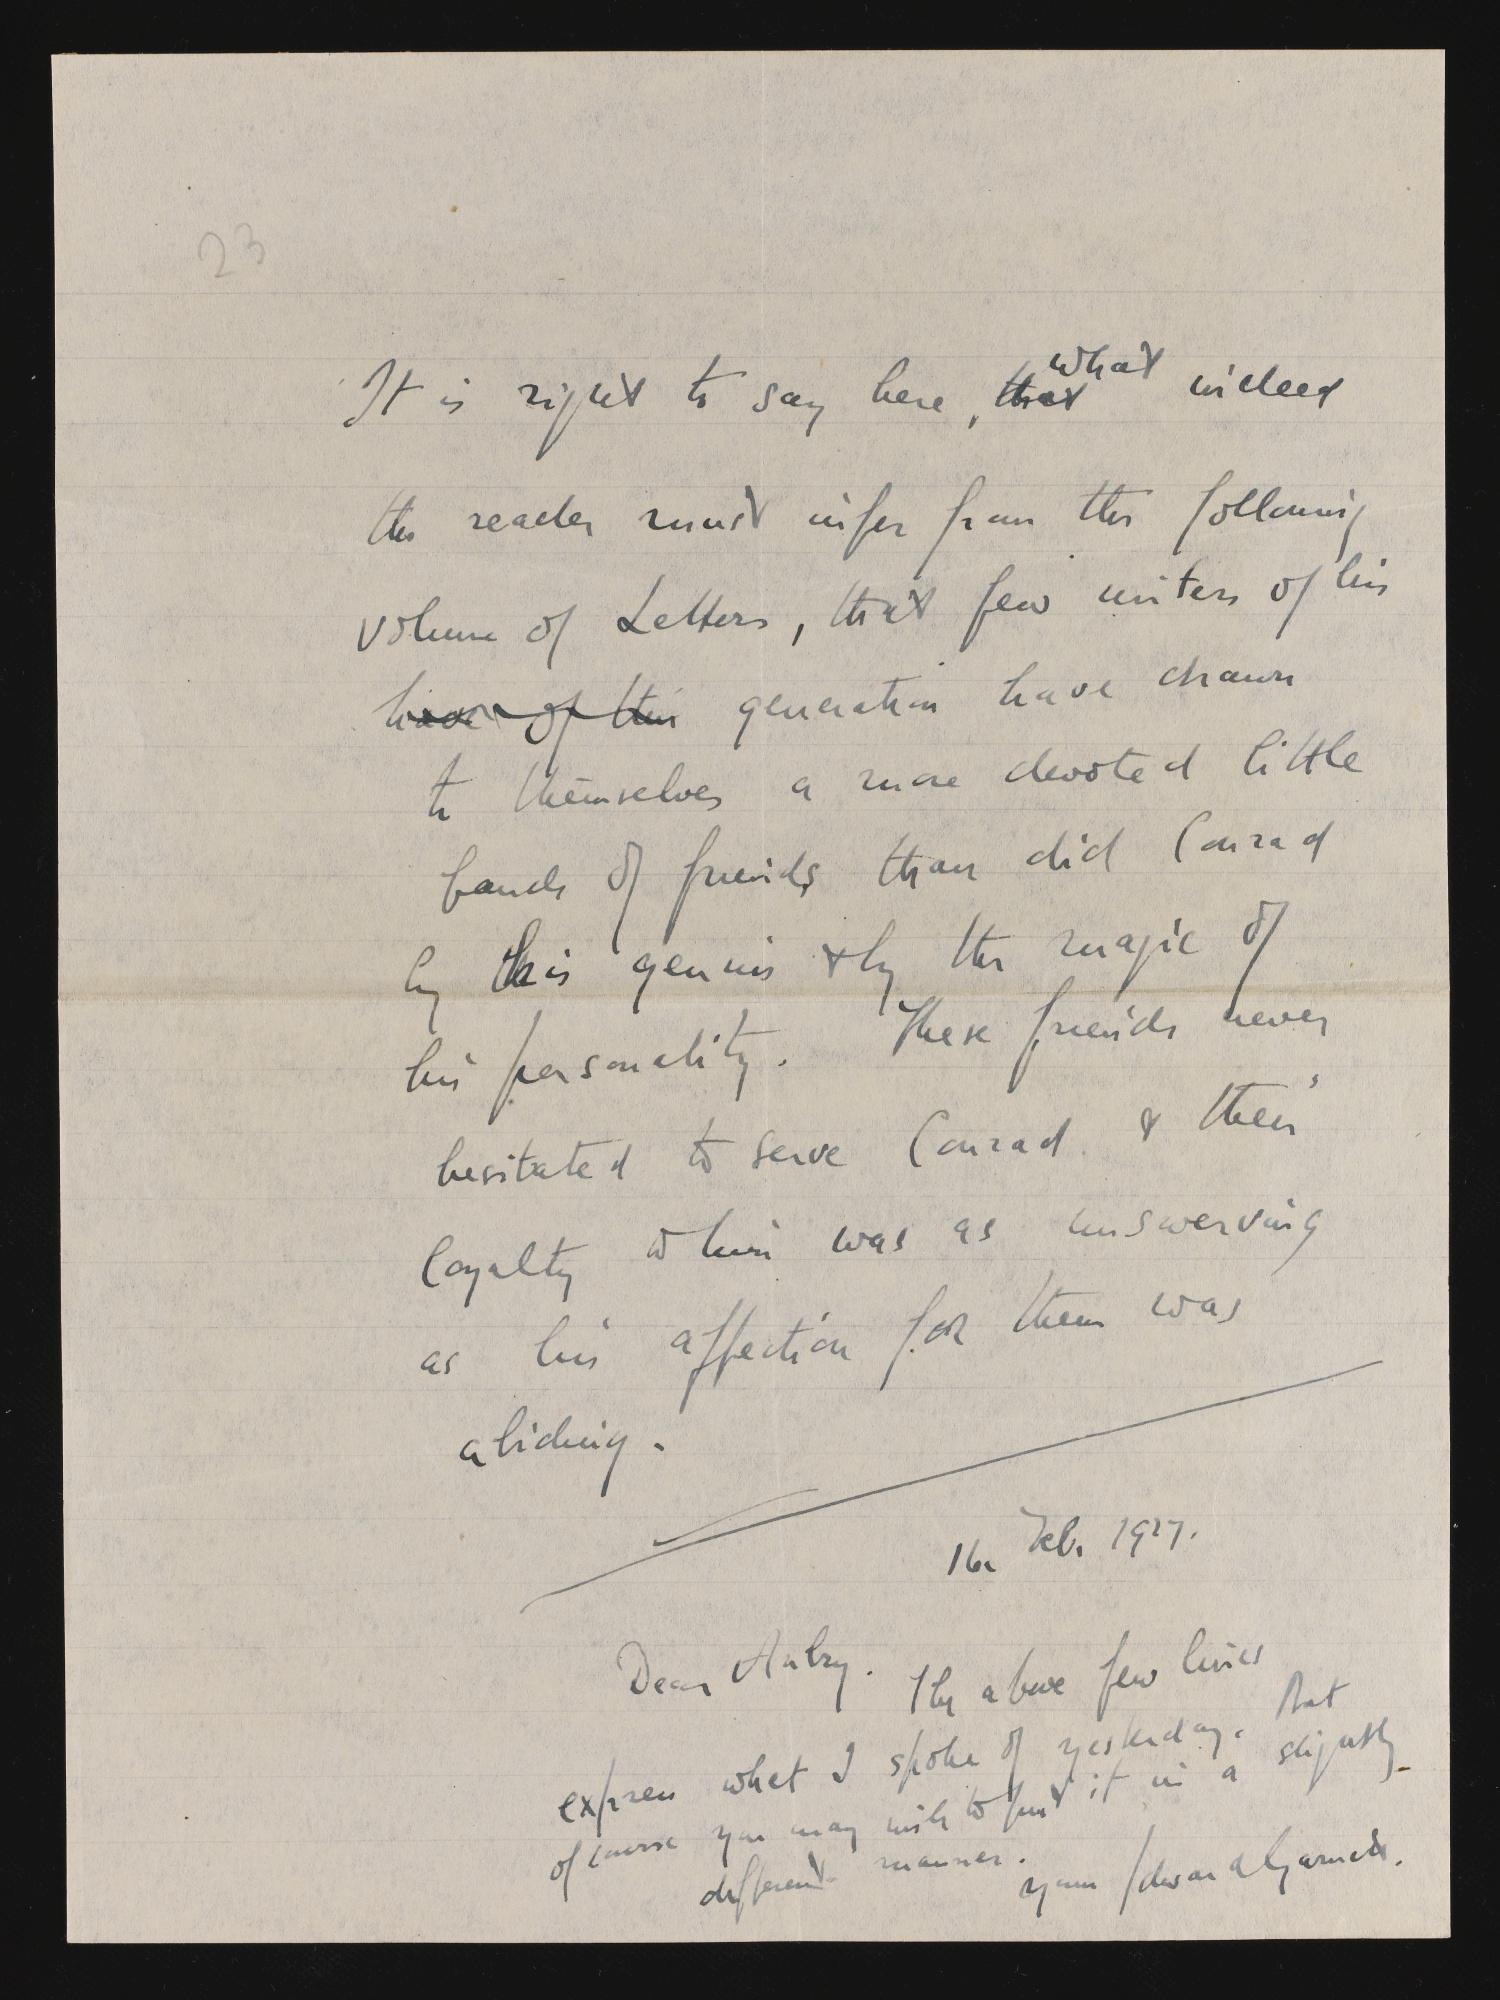 23
It is right to say here, that what indeed
the reader must infer from the following
volume of Letters, that few writers of his
have of their generation have drawn
to themselves a more devoted little
band of friends than did Conrad
by his genius & by the magic of
his personality. These friends never
hesitated to serve Conrad & their
loyalty to him was as unswerving
as his affection for them was
abiding.
16 Feb. 1927.
Dear Aubry. The above few lines
express what I spoke of yesterday. But
of course you may wish to put it in a slightly
different manner.
yours Edward Garnett.